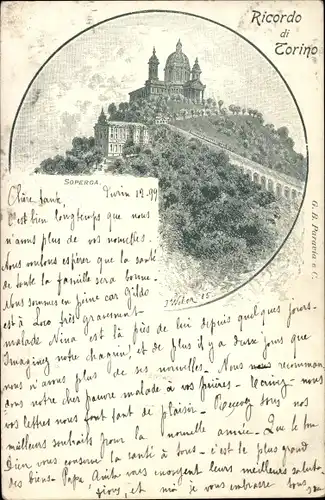 Ricordo
di
Torino
SOPERGA.
G. B. Paravia e C.
Chère tante, Turin 12-99
C'est bien longtemps que nous
n'avons plus de vos nouvelles.
Nous voulons espérer que la santé
de toute la famille sera bonne.
Nous sommes en peine car Gildo
est à très gravement
malade Nina est là près de lui depuis quelques jours.
Imaginez notre chagrin, et de plus il y a deux jours que
nous n'avons plus de ses nouvelles. Nous recomman
dons notre cher pauvre malade à vos prières.
vos lettres nous font tant de plaisir. Recevez tous nos
meilleurs souhaits pour la nouvelle année. Que le bon
Dieu vous conserve la santé à tous. c'est le plus grand
des biens. Papa vous envoyent leurs meilleures saluta
tions, et moi je vous embrasse tous